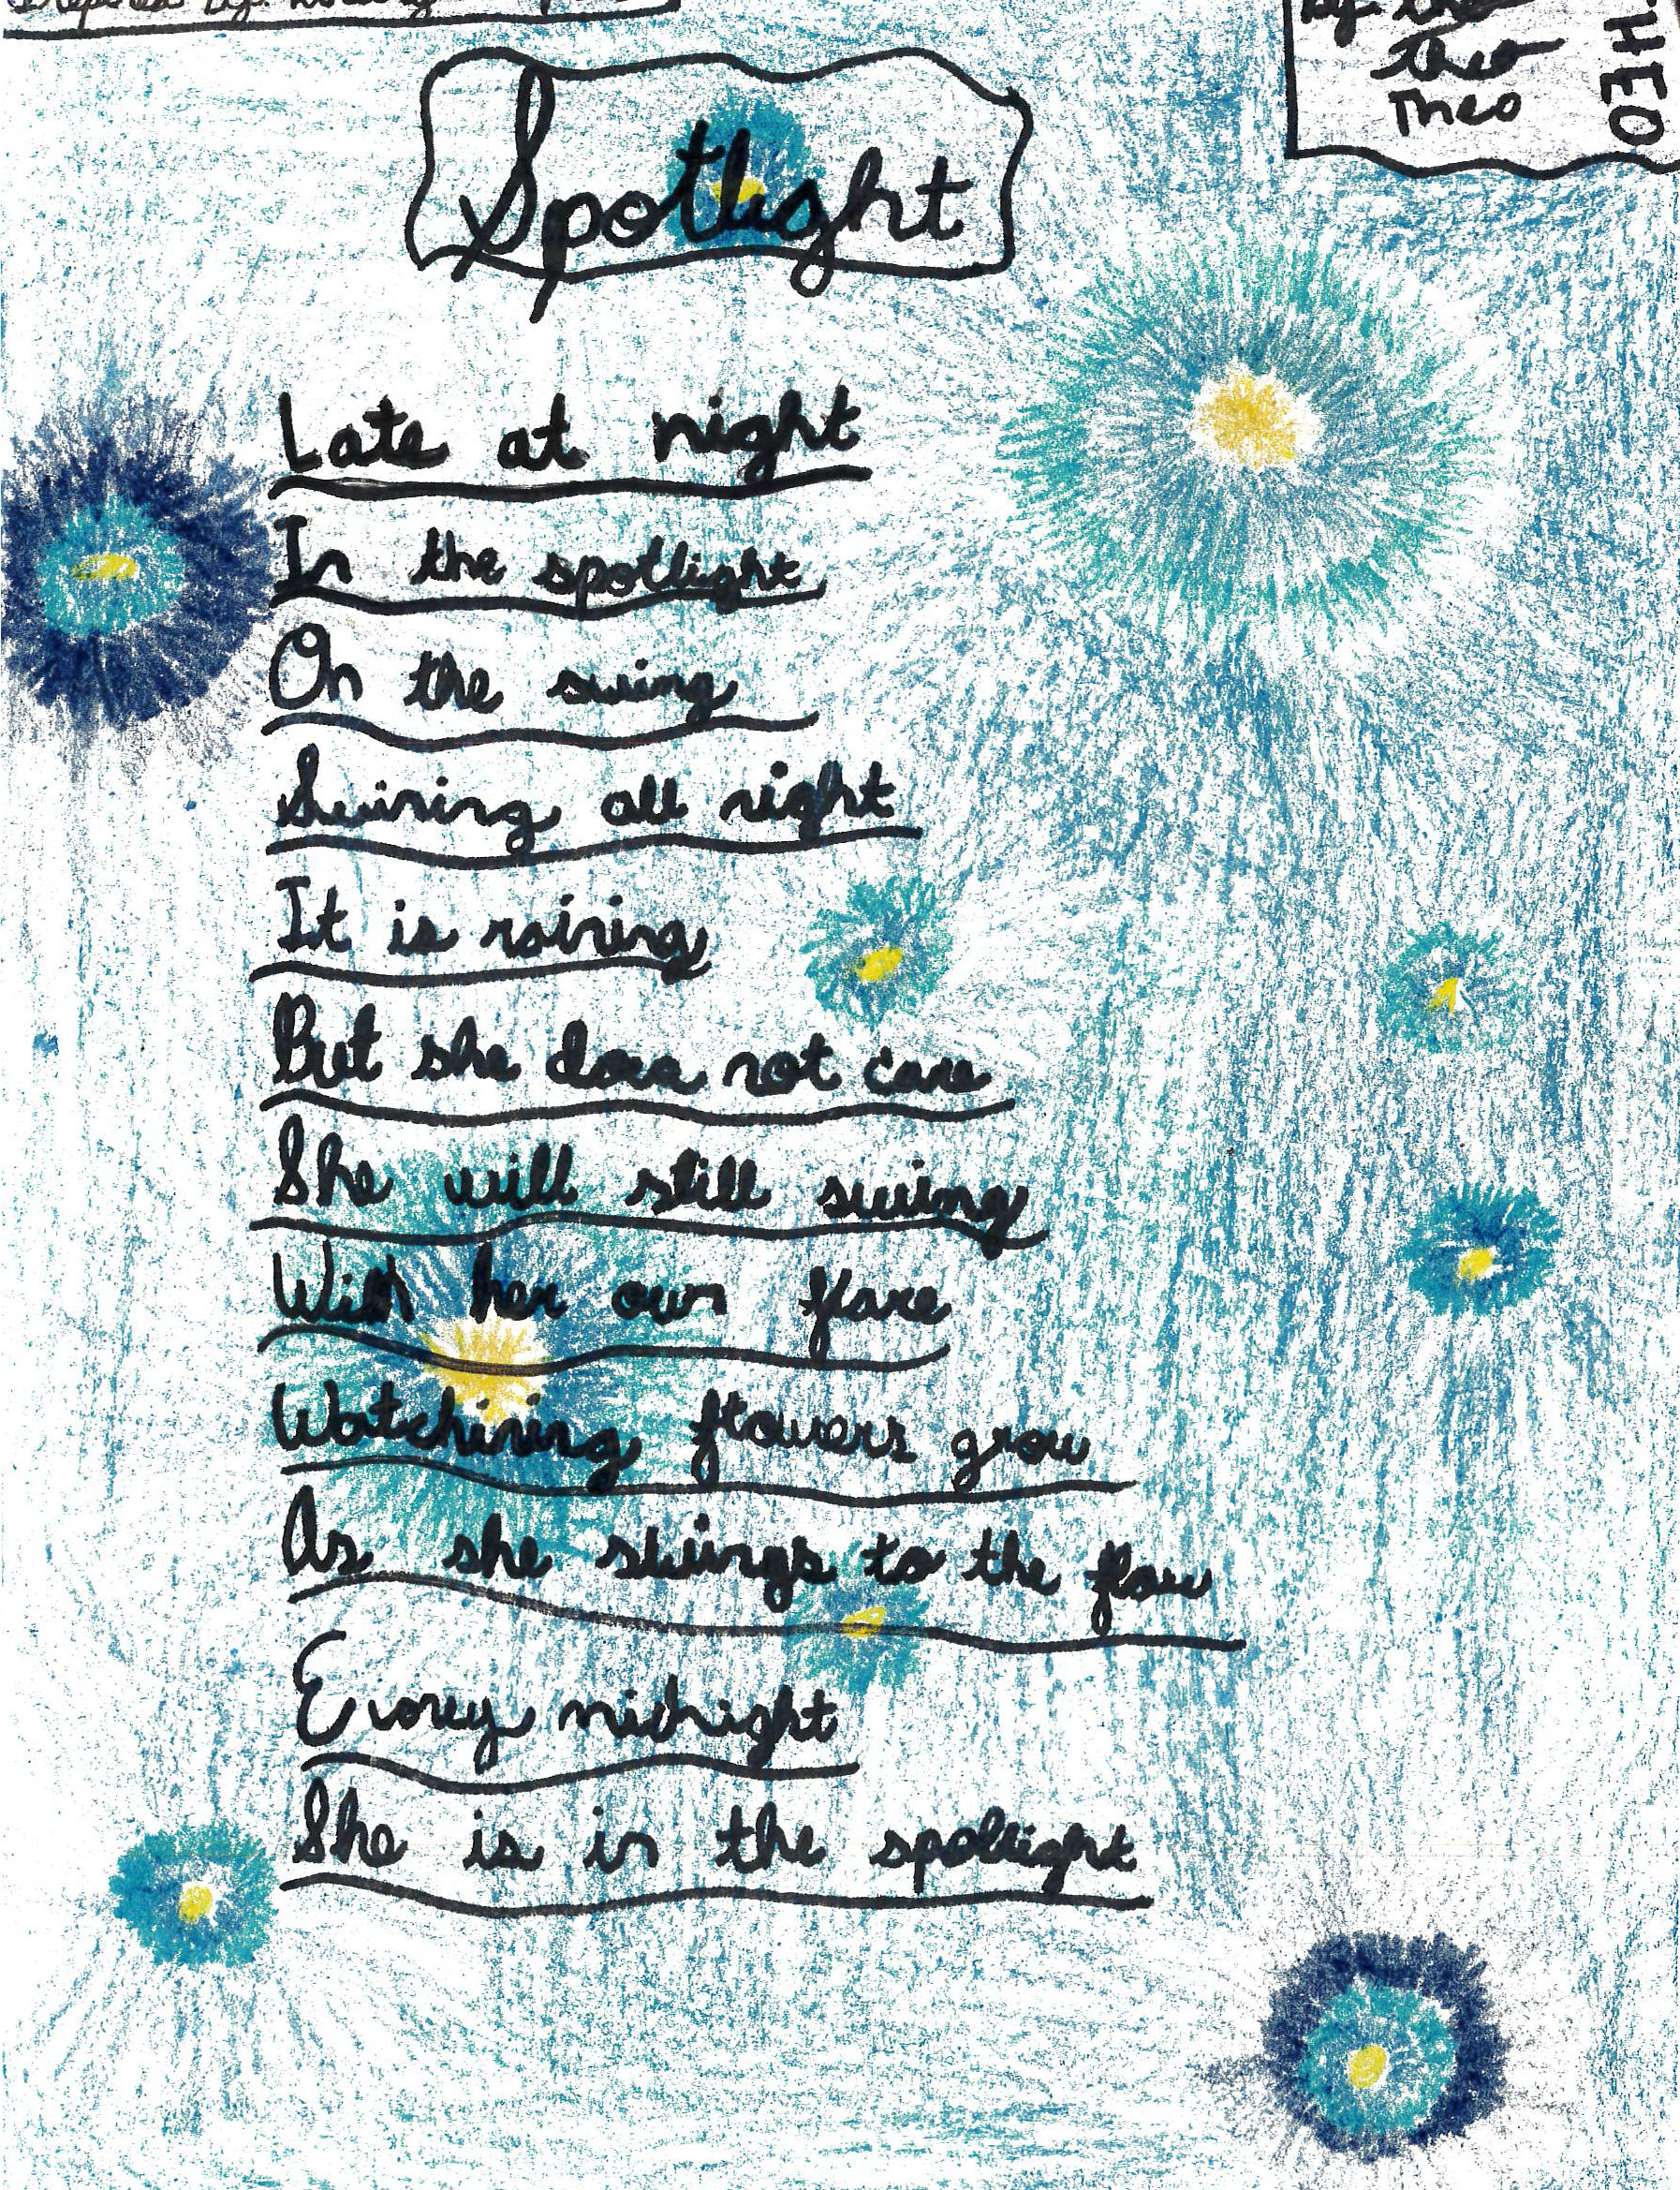 by: the
theo
Theo
THEO
Spotlight
Late at night
In the spotlight
On the swing
Swining all night
It is raining
But she does not care
She will still swing
With her own flare
Watchining flowers grow
As she swings to the flow
Everey midnight
She is in the spotlight